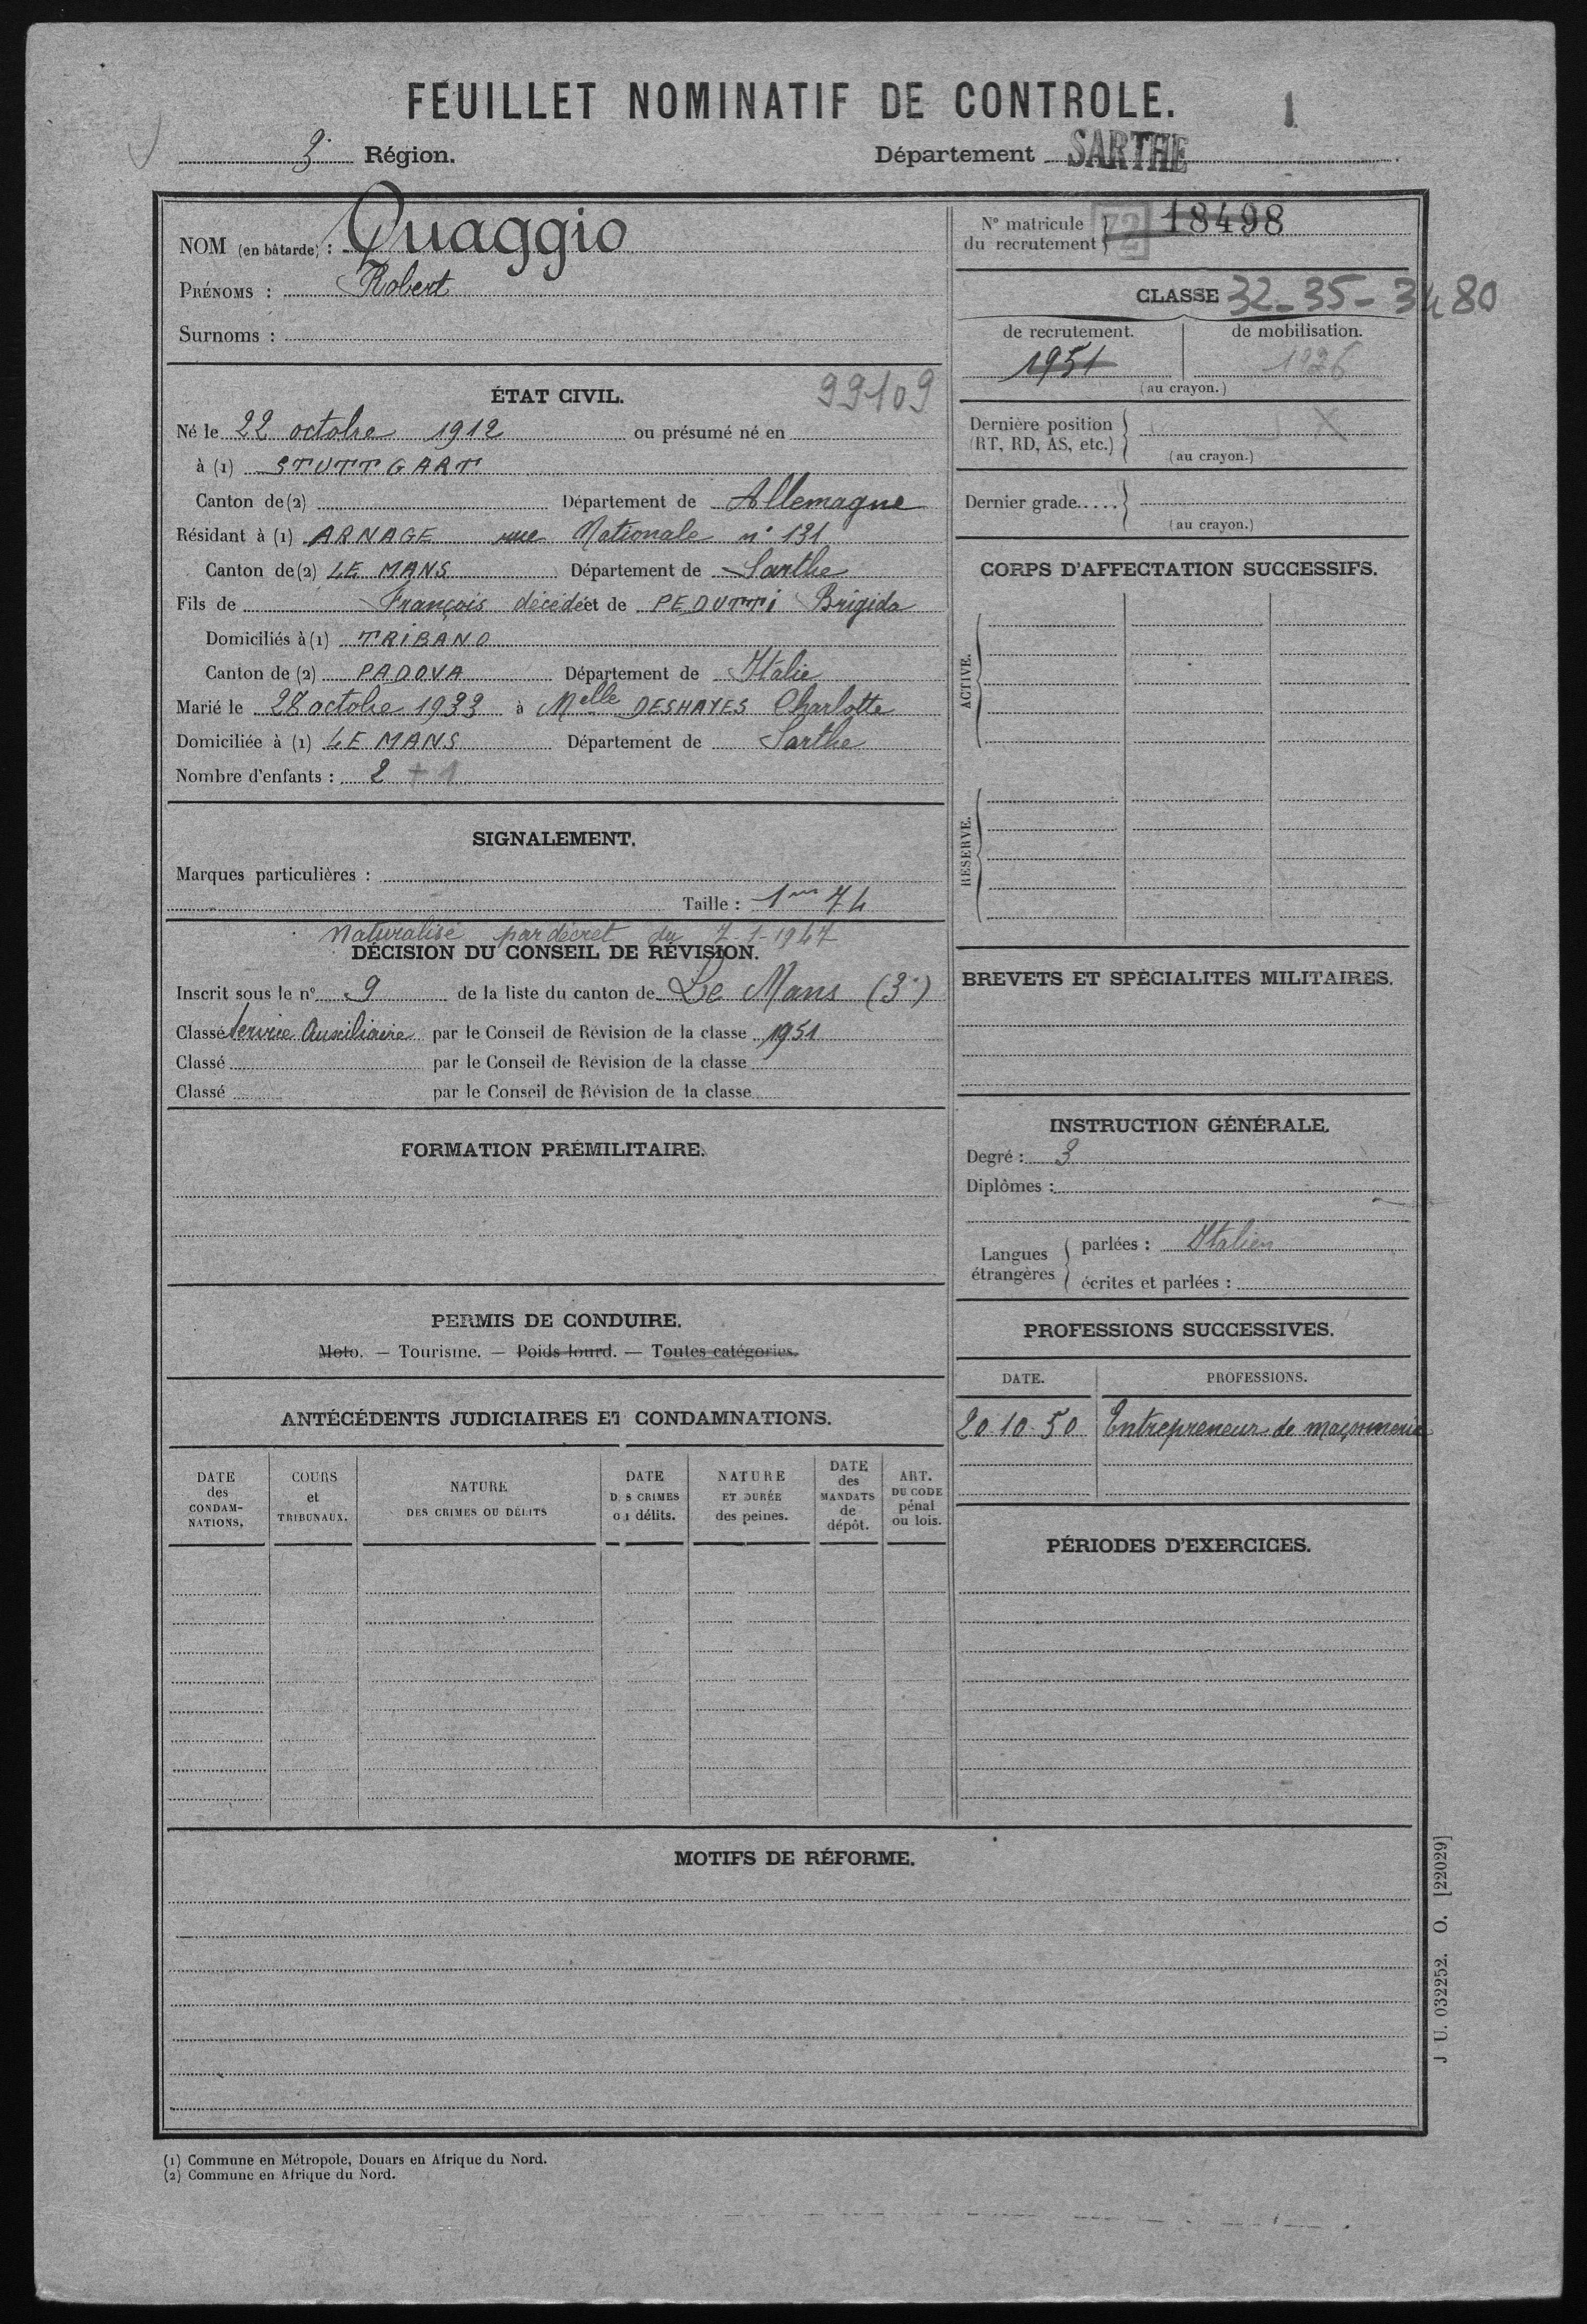 FEUILLET NOMINATIF DE CONTROLE.
1
3e Région.
Département SARTHE
NOM (en bâtarde) : Quaggio
PRÉNOMS : Robert
Surnoms :
N° matricule du recrutement 72 18498
CLASSE 32-35-34 80
de recrutement. de mobilisation.
1951 1936
(au crayon.)
Dernière position (RT, RD, AS, etc.) X
(au crayon.)
Dernier grade.....
(au crayon.)
ÉTAT CIVIL. 99109
Né le 22 octobre 1912 ou présumé né en
à (1) STUTTGART
Canton de (2) Département de Allemagne
Résidant à (1) ARNAGE rue Nationale n° 131
Canton de (2) LE MANS Département de Sarthe
Fils de François décédé et de PEDUTTI Brigida
Domiciliés à (1) TRIBANO
Canton de (2) PADOVA Département de Italie
Marié le 28 octobre 1933 à Melle DESHAYES Charlotte
Domiciliée à (1) LE MANS Département de Sarthe
Nombre d'enfants : 2 + 1
SIGNALEMENT.
Marques particulières :
Taille : 1m 74
Naturalisé par décret du 7-1-1947
DÉCISION DU CONSEIL DE RÉVISION.
Inscrit sous le n° 9 de la liste du canton de Le Mans (3e)
Classé Service Auxiliaire par le Conseil de Révision de la classe 1951
Classé par le Conseil de Révision de la classe
Classé par le Conseil de Révision de la classe
FORMATION PRÉMILITAIRE.
PERMIS DE CONDUIRE.
Moto. — Tourisme. — Poids lourd. — Toutes catégories.
ANTÉCÉDENTS JUDICIAIRES ET CONDAMNATIONS.
DATE des CONDAMNATIONS.
COURS et TRIBUNAUX.
NATURE DES CRIMES OU DÉLITS
DATE D S CRIMES o i délits.
NATURE ET DURÉE des peines.
DATE des MANDATS de dépôt.
ART. DU CODE pénal ou lois.
CORPS D'AFFECTATION SUCCESSIFS.
ACTIVE.
RÉSERVE.
BREVETS ET SPÉCIALITES MILITAIRES.
INSTRUCTION GÉNÉRALE.
Degré : 3
Diplômes :
Langues étrangères
parlées : Italien
écrites et parlées :
PROFESSIONS SUCCESSIVES.
DATE. PROFESSIONS.
20-10-50 Entrepreneur de maçonnerie
PÉRIODES D'EXERCICES.
MOTIFS DE RÉFORME.
J. U. 032252. O. [22029]
(1) Commune en Métropole, Douars en Afrique du Nord.
(2) Commune en Afrique du Nord.